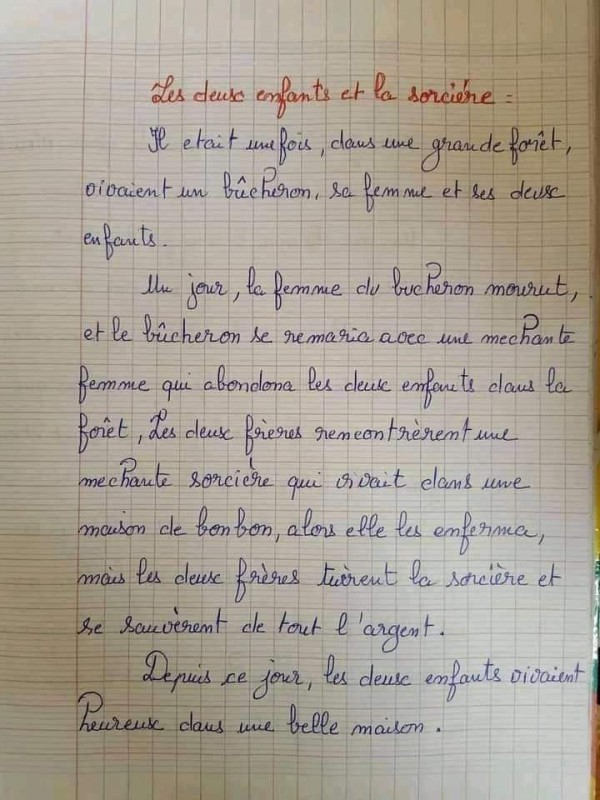 Les deux enfants et la sorcière :
Il etait une fois, dans une grande forêt,
vivaient un bûcheron, sa femme et ses deux
enfants.
Un jour, la femme du bucheron mourut,
et le bûcheron se remaria avec une mechante
femme qui abondona les deux enfants dans la
forêt, Les deux frères rencontrèrent une
mechante sorcière qui vivait dans une
maison de bonbon, alors elle les enferma,
mais les deux frères tuèrent la sorcière et
se sauvèrent de tout l'argent.
Depuis ce jour, les deux enfants vivaient
heureux dans une belle maison.